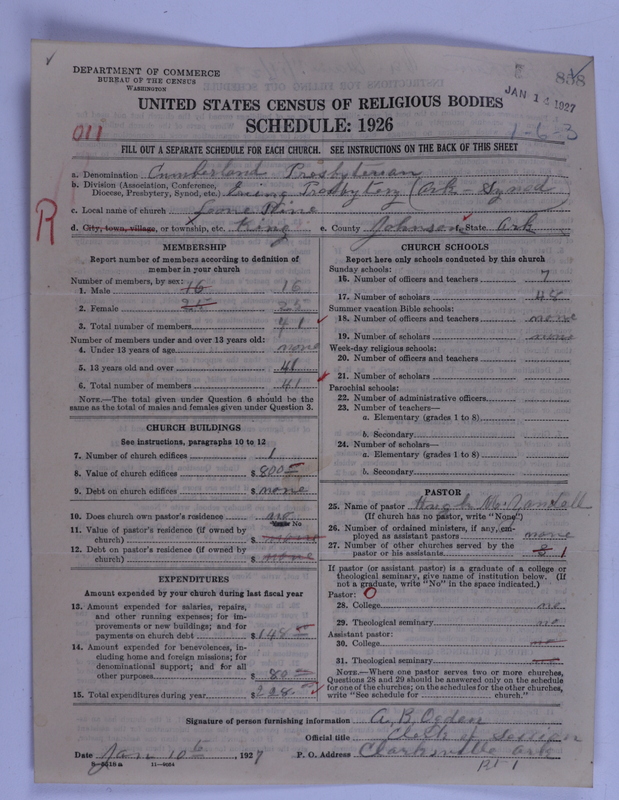 DEPARTMENT OF COMMERCE
BUREAU OF THE CENSUS
WASHINGTON
858
JAN 14 1927
UNITED STATES CENSUS OF RELIGIOUS BODIES
SCHEDULE: 1926
011
1-6-3
FILL OUT A SEPARATE SCHEDULE FOR EACH CHURCH. SEE INSTRUCTIONS ON THE BACK OF THIS SHEET
a. Denomination Cumberland Presbyterian
b. Division (Association, Conference, Diocese, Presbytery, Synod, etc.) Ewing Presbytery (Ark - Synod
c. Local name of church Lone Pine
R
d. City, town, village, or township, etc. King e. County Johnson State Ark
MEMBERSHIP
Report number of members according to definition of member in your church
Number of members, by sex:
1. Male 16 16
2. Female 25 25
3. Total number of members 41
Number of members under and over 13 years old:
4. Under 13 years of age none
5. 13 years old and over 41
6. Total number of members 41
NOTE.—The total given under Question 6 should be the same as the total of males and females given under Question 3.
CHURCH BUILDINGS
See instructions, paragraphs 10 to 12
7. Number of church edifices 1
8. Value of church edifices $ 800
9. Debt on church edifices $ none
10. Does church own pastor's residence no
No
11. Value of pastor's residence (if owned by church) $ none
12. Debt on pastor's residence (if owned by church) $ none
EXPENDITURES
Amount expended by your church during last fiscal year
13. Amount expended for salaries, repairs, and other running expenses; for improvements or new buildings; and for payments on church debt $ 148
14. Amount expended for benevolences, including home and foreign missions; for denominational support; and for all other purposes $ 80
15. Total expenditures during year $ 228
CHURCH SCHOOLS
Report here only schools conducted by this church
Sunday schools:
16. Number of officers and teachers 7
17. Number of scholars 48
Summer vacation Bible schools:
18. Number of officers and teachers none
19. Number of scholars none
Week-day religious schools:
20. Number of officers and teachers
21. Number of scholars
Parochial schools:
22. Number of administrative officers
23. Number of teachers—
a. Elementary (grades 1 to 8)
b. Secondary
24. Number of scholars—
a. Elementary (grades 1 to 8)
b. Secondary
PASTOR
25. Name of pastor Hugh Mc
(If church has no pastor, write "None")
26. Number of ordained ministers, if any, employed as assistant pastors none
27. Number of other churches served by the pastor or his assistants 3 1
If pastor (or assistant pastor) is a graduate of a college or theological seminary, give name of institution below. (If not a graduate, write "No" in the space indicated.)
Pastor: O
28. College no
29. Theological seminary no
Assistant pastor:
30. College no
31. Theological seminary no
NOTE.—Where one pastor serves two or more churches, Questions 28 and 29 should be answered only on the schedule for one of the churches; on the schedules for the other churches, write "See schedule for church."
Signature of person furnishing information A, B, Ogden
Official title Clerk of Session
Date Jan 10th, 1927 P. O. Address Clarksville Ark
Rt 1
8-5519a 11-9064